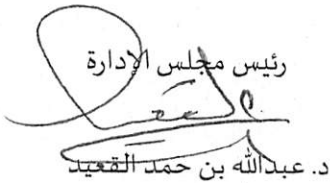 رئيس مجلس الإدارة
د. عبدالله بن حمد القعيد